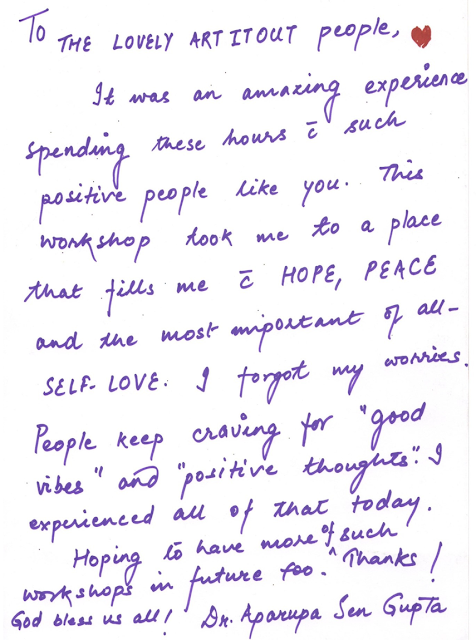 To THE LOVELY ART IT OUT people, ♥
It was an amazing experience
spending these hours c̄ such
positive people like you. This
workshop took me to a place
that fills me c̄ HOPE, PEACE
and the most important of all-
SELF-LOVE. I forgot my worries.
People keep craving for "good
vibes" and "positive thoughts". I
experienced all of that today.
Hoping to have more of such
workshops in future too. Thanks!
God bless us all! Dr. Aparupa Sen Gupta